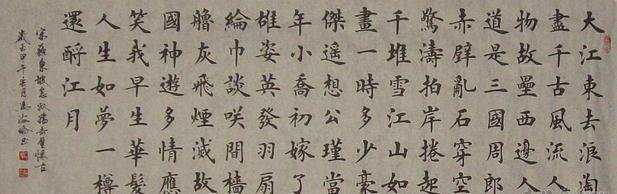 大江東去浪淘
盡千古風流人
物故壘西邊人
道是三國周郎
赤壁亂石穿空
驚濤拍岸捲起
千堆雪江山如
畫一時多少豪
傑遙想公瑾當
年小喬初嫁了
雄姿英發羽扇
綸巾談咲間檣
艣灰飛煙滅故
國神遊多情應
笑我早生華髮
人生如夢一樽
還酹江月
宋蘇東坡念奴嬌赤壁懷古
歲在甲午